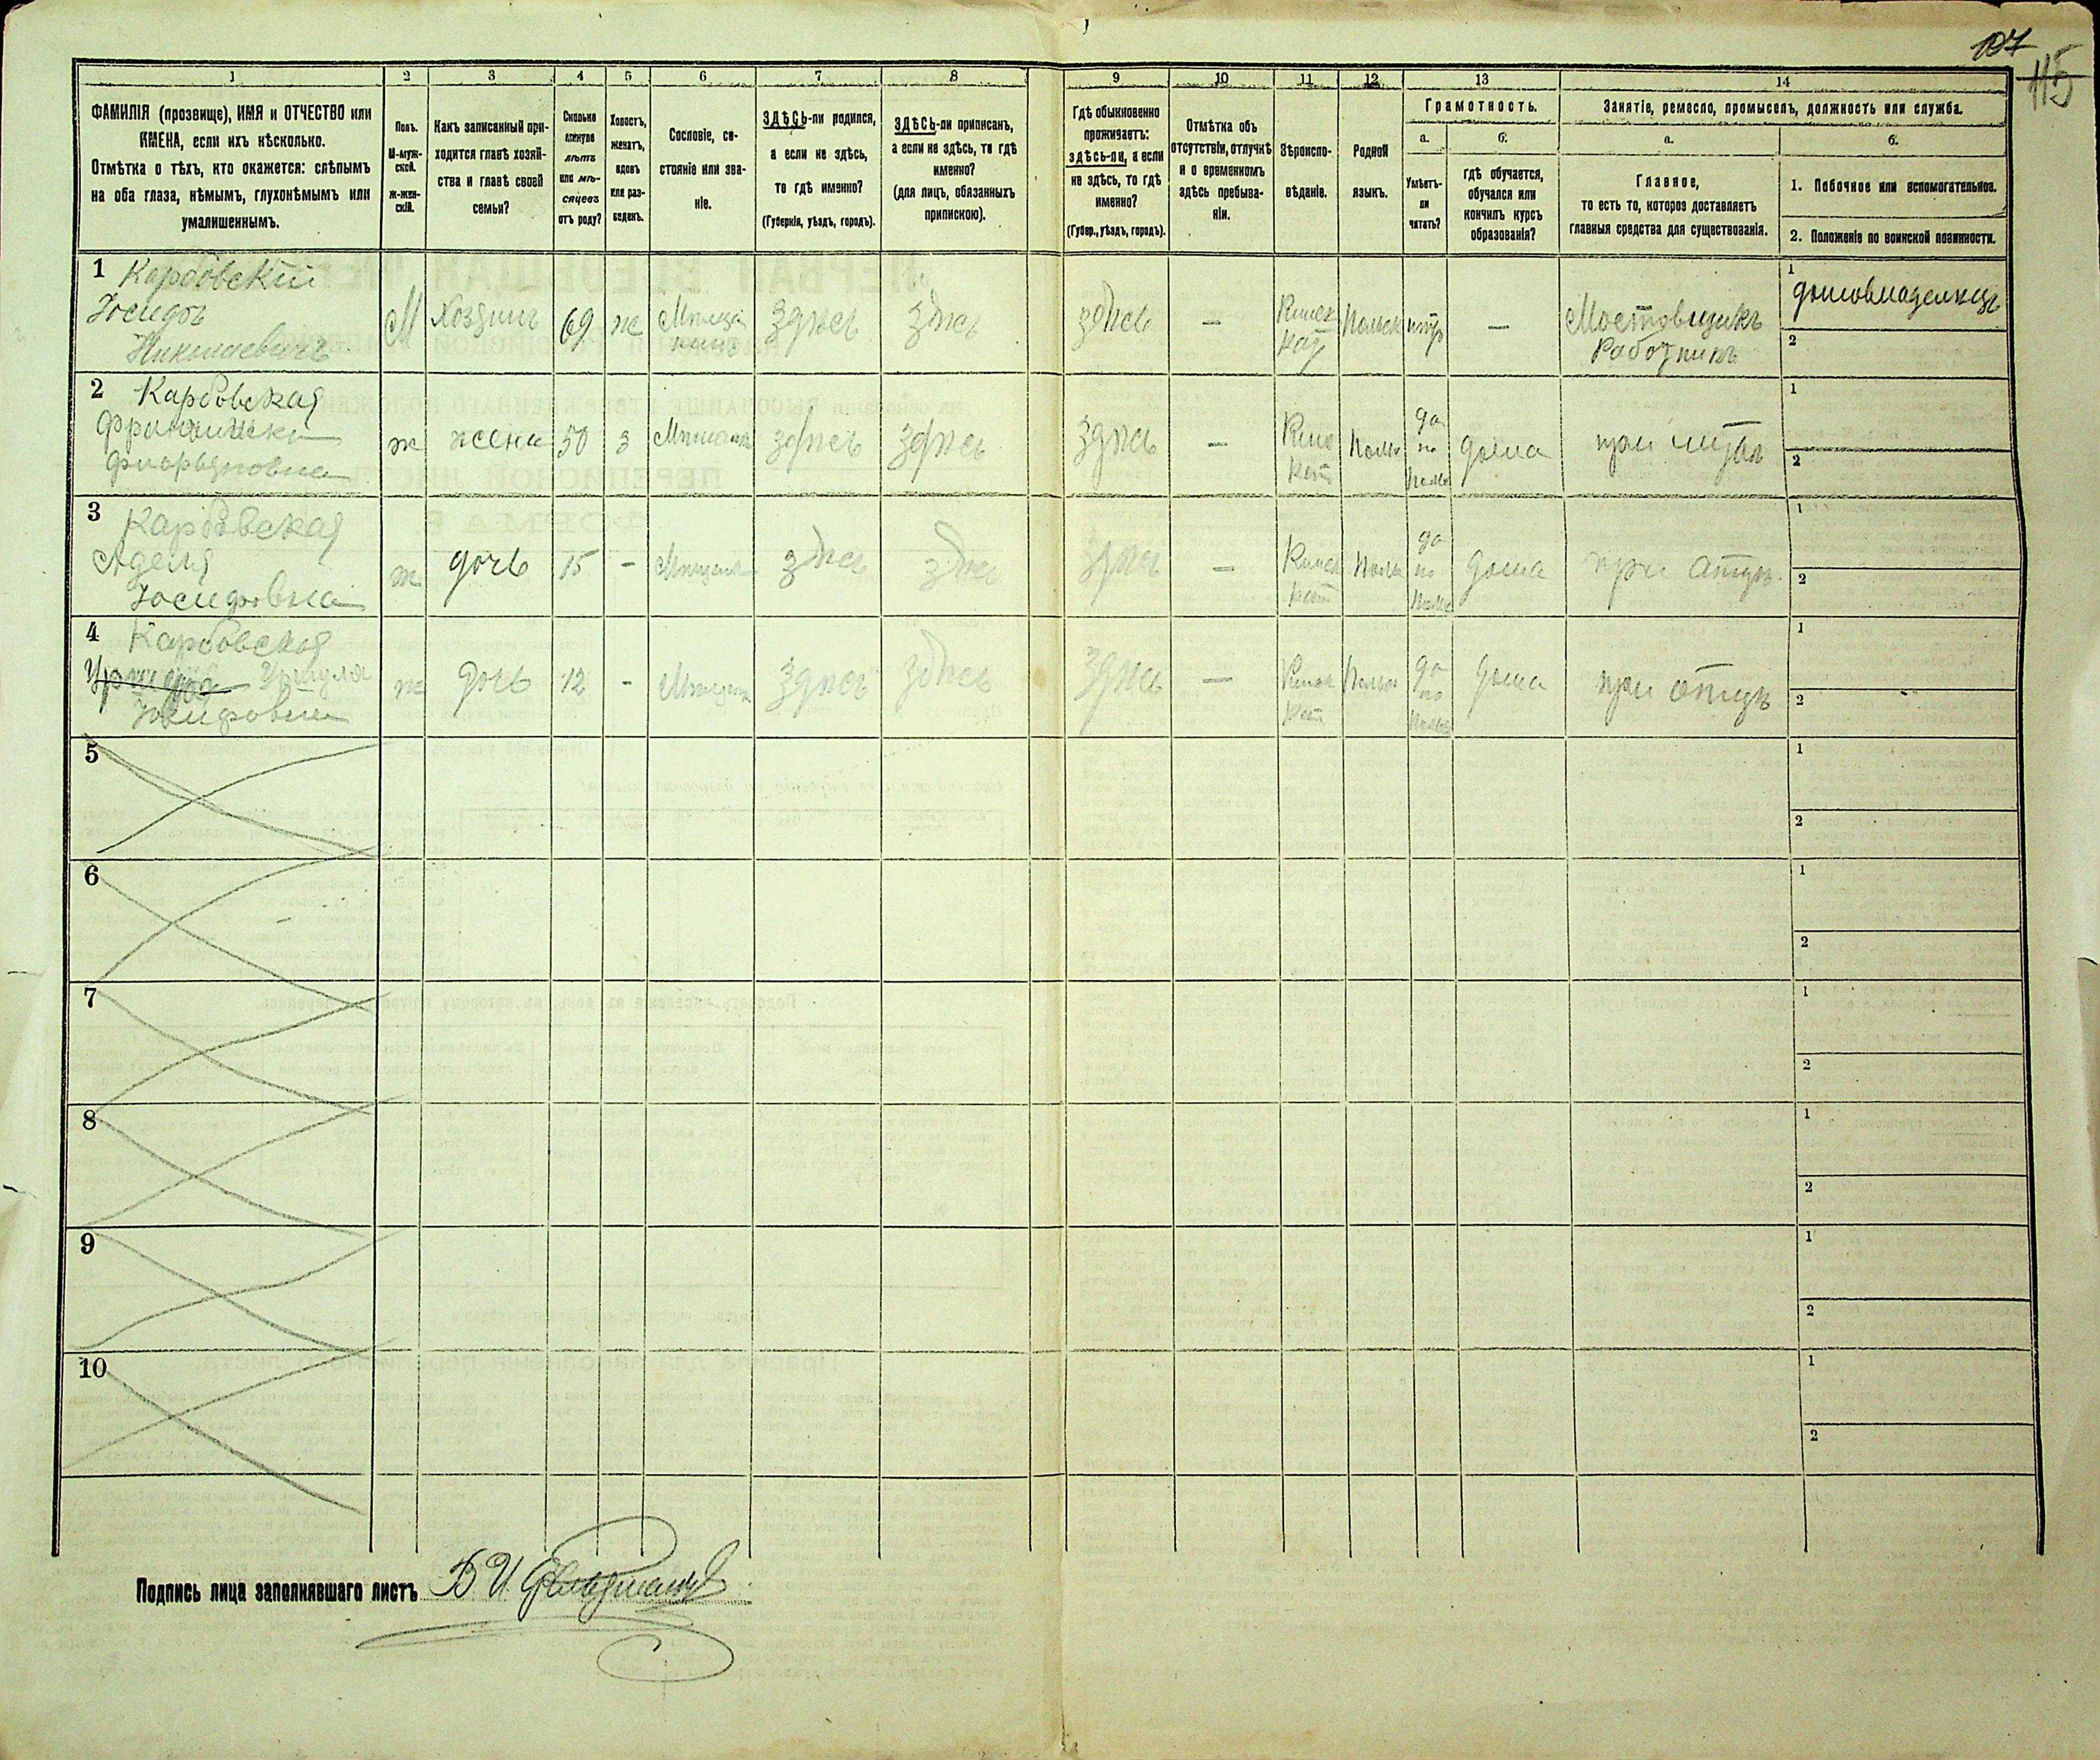 107
115
1
2
3
4
5
6
7
8
9
10
11
12
13
14
ФАМИЛІЯ (прозвище), ИМЯ и ОТЧЕСТВО или
ИМЕНА, если ихъ нѣсколько.
Отмѣтка о тѣхъ, кто окажется: слѣпымъ
на оба глаза, нѣмымъ, глухонѣмымъ или
умалишеннымъ.
Полъ.
М-муж-
ской.
Ж-жен-
скій.
Какъ записанный при-
ходится главѣ хозяй-
ства и главѣ своей
семьи?
Сколько
минуло
лѣтъ
или мѣ-
сяцевъ
отъ роду?
Холостъ,
женатъ,
вдовъ
или раз-
веденъ.
Сословіе, со-
стояніе или зва-
ніе.
ЗДѢСЬ-ли родился,
а если не здѣсь,
то гдѣ именно?
(Губернія, уѣздъ, городъ).
ЗДѢСЬ-ли приписанъ,
а если не здѣсь, то гдѣ
именно?
(для лицъ, обязанныхъ
припискою).
Гдѣ обыкновенно
проживаетъ:
здѣсь-ли, а если
не здѣсь, то гдѣ
именно?
(Губер., уѣздъ, городъ).
Отмѣтка объ
отсутствіи, отлучкѣ
и о временномъ
здѣсь пребыва-
ніи.
Вѣроиспо-
вѣданіе.
Родной
языкъ.
Грамотность.
а.
Умѣетъ-
ли
читать?
б.
гдѣ обучается,
обучался или
кончилъ курсъ
образованія?
Занятіе, ремесло, промыселъ, должность или служба.
а.
Главное,
то есть то, которое доставляетъ
главныя средства для существованія.
б.
1. Побочное или вспомогательное.
2. Положеніе по воинской повинности.
1 Карбовскій
Іосифъ
М
Хозяинъ
69
ж
Мѣща
нинъ
здѣсь
здѣсь
здѣсь
—
Римск
кат
Польск
—
Мостовщикъ
Работникъ
1
домовладелецъ
2
2 Карбовская
Франциска
Флорьяновна
ж
жена
50
З
здѣсь
здѣсь
здѣсь
—
Римс
кат
Польс
да
по
Польс
дома
при мужѣ
1
2
3 Карбовская
Аделя
Іосифовна
ж
дочь
15
-
здѣсь
здѣсь
здѣсь
—
Римск
кат
Польс
да
по
Польс
дома
при отцѣ
1
2
4 Карбовская
Уршуля
Іосифовна
ж
дочь
12
-
здѣсь
здѣсь
здѣсь
—
Римск
кат
Польск
да
по
Польс
дома
при отцѣ
1
2
5
1
2
6
1
2
7
1
2
8
1
2
9
1
2
10
1
2
Подпись лица заполнявшаго листъ